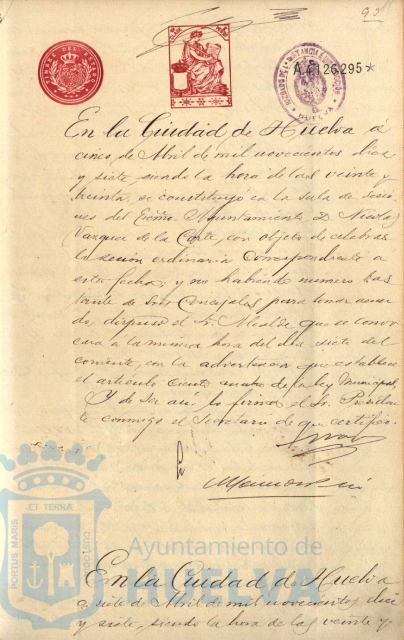 TIMBRE DEL ESTADO
A.1.126.295*
HUELVA
En la Ciudad de Huelva á
cinco de Abril de mil novecientos diez
y siete, siendo la hora de las veinte y
treinta, se constituyó en la sala de Sesio
nes del Excmo. Ayuntamiento D.
Vazquez de la Corte, con objeto de celebrar
la sesión ordinaria correspondiente a
esta fecha, y no habiendo numero bas
tante de Sres Concejales para tomar acuer
do, dispuso el Sr. Alcalde que se convo
cara a la misma hora del dia siete del
corriente, con la advertencia que establece
el articulo ciento cuatro de la ley Municipal.
Y de ser asi lo firma el Sr. Presiden
te conmigo el Secretario de que certifico.
PORTUS MARIS ET TERRÆ CUSTODIA
Ayuntamiento de
HUELVA
En la Ciudad de Huelva
a siete de Abril de mil novecientos diez
y siete, siendo la hora de las veinte y